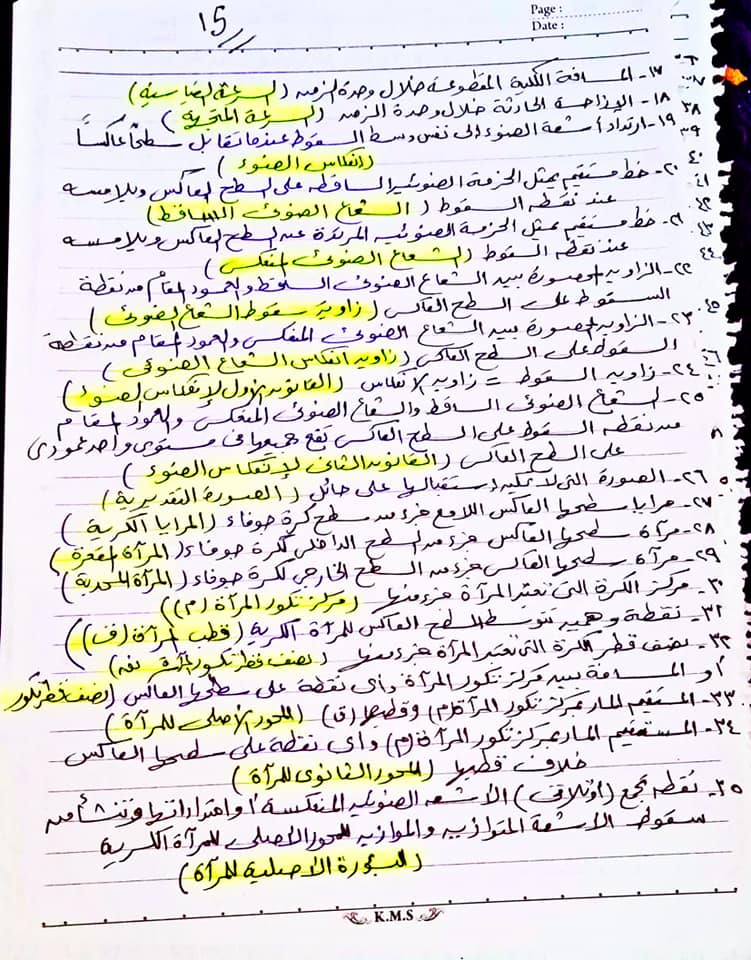 15
Page :
Date :
١٧- المسافة الكلية المقطوعة خلال وحدة الزمن (السرعة القياسية)
١٨- الإزاحة الحادثة خلال وحدة الزمن (السرعة المتجهة)
١٩- ارتداد أشعة الضوء إلى نفس وسط السقوط عندما تقابل سطحاً عاكساً
(انعكاس الضوء)
٢٠- خط مستقيم يمثل الحزمة الضوئية الساقطة على السطح العاكس ويلامسه
عند نقطة السقوط (الشعاع الضوئى الساقط)
٢١- خط مستقيم يمثل الحزمة الضوئية المرتدة عن السطح العاكس ويلامسه
عند نقطة السقوط (الشعاع الضوئى المنعكس)
٢٢- الزاوية المحصورة بين الشعاع الضوئى الساقط والعمود المقام من نقطة
السقوط على السطح العاكس (زاوية سقوط الشعاع الضوئى)
٢٣- الزاوية المحصورة بين الشعاع الضوئى المنعكس والعمود المقام من نقطة
السقوط على السطح العاكس (زاوية انعكاس الشعاع الضوئى)
٢٤- زاوية السقوط = زاوية الانعكاس (القانون الأول لإنعكاس الضوء)
٢٥- الشعاع الضوئى الساقط والشعاع الضوئى المنعكس والعمود المقام
من نقطة السقوط على السطح العاكس تقع جميعها فى مستوى واحد عمودى
على السطح العاكس (القانون الثانى لإنعكاس الضوء)
٢٦- الصورة التى لا يمكن إستقبالها على حائل (الصورة التقديرية)
٢٧- مرايا سطحها العاكس اللامع جزء من سطح كرة جوفاء (المرايا الكرية)
٢٨- مرآة سطحها العاكس جزء من السطح الداخلى لكرة جوفاء (المرآة المقعرة)
٢٩- مرآة سطحها العاكس جزء من السطح الخارجى لكرة جوفاء (المرآة المحدبة)
٣٠- مركز الكرة التى تعتبر المرآة جزء منها (مركز تكور المرآة (م))
٣١- نقطة وهمية تتوسط السطح العاكس للمرآة الكرية (قطب المرآة (ق))
٣٢- نصف قطر الكرة التى تعتبر المرآة جزء منها (نصف قطر تكور المرآة نق)
أو المسافة بين مركز تكور المرآة وأى نقطة على سطحها العاكس (نصف قطر تكور
٣٣- المستقيم المار بمركز تكور المرآة (م) وقطبها (ق) (المحور الأصلى للمرآة)
٣٤- المستقيم المار بمركز تكور المرآة (م) وأى نقطة على سطحها العاكس
خلاف قطبها (المحور الثانوى للمرآة)
٣٥- نقطة تجمع (أو تلاقى) الأشعة الضوئية المنعكسة أو امتداداتها وتنشأ من
سقوط الأشعة المتوازية والموازية للمحور الأصلى للمرآة الكرية
(البؤرة الأصلية للمرآة)
K.M.S